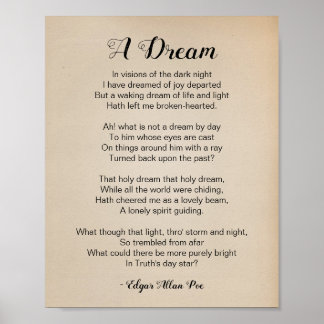 A Dream
In visions of the dark night
I have dreamed of joy departed
But a waking dream of life and light
Hath left me broken-hearted.
Ah! what is not a dream by day
To him whose eyes are cast
On things around him with a ray
Turned back upon the past?
That holy dream that holy dream,
While all the world were chiding,
Hath cheered me as a lovely beam,
A lonely spirit guiding.
What though that light, thro' storm and night,
So trembled from afar
What could there be more purely bright
In Truth's day star?
- Edgar Allan Poe